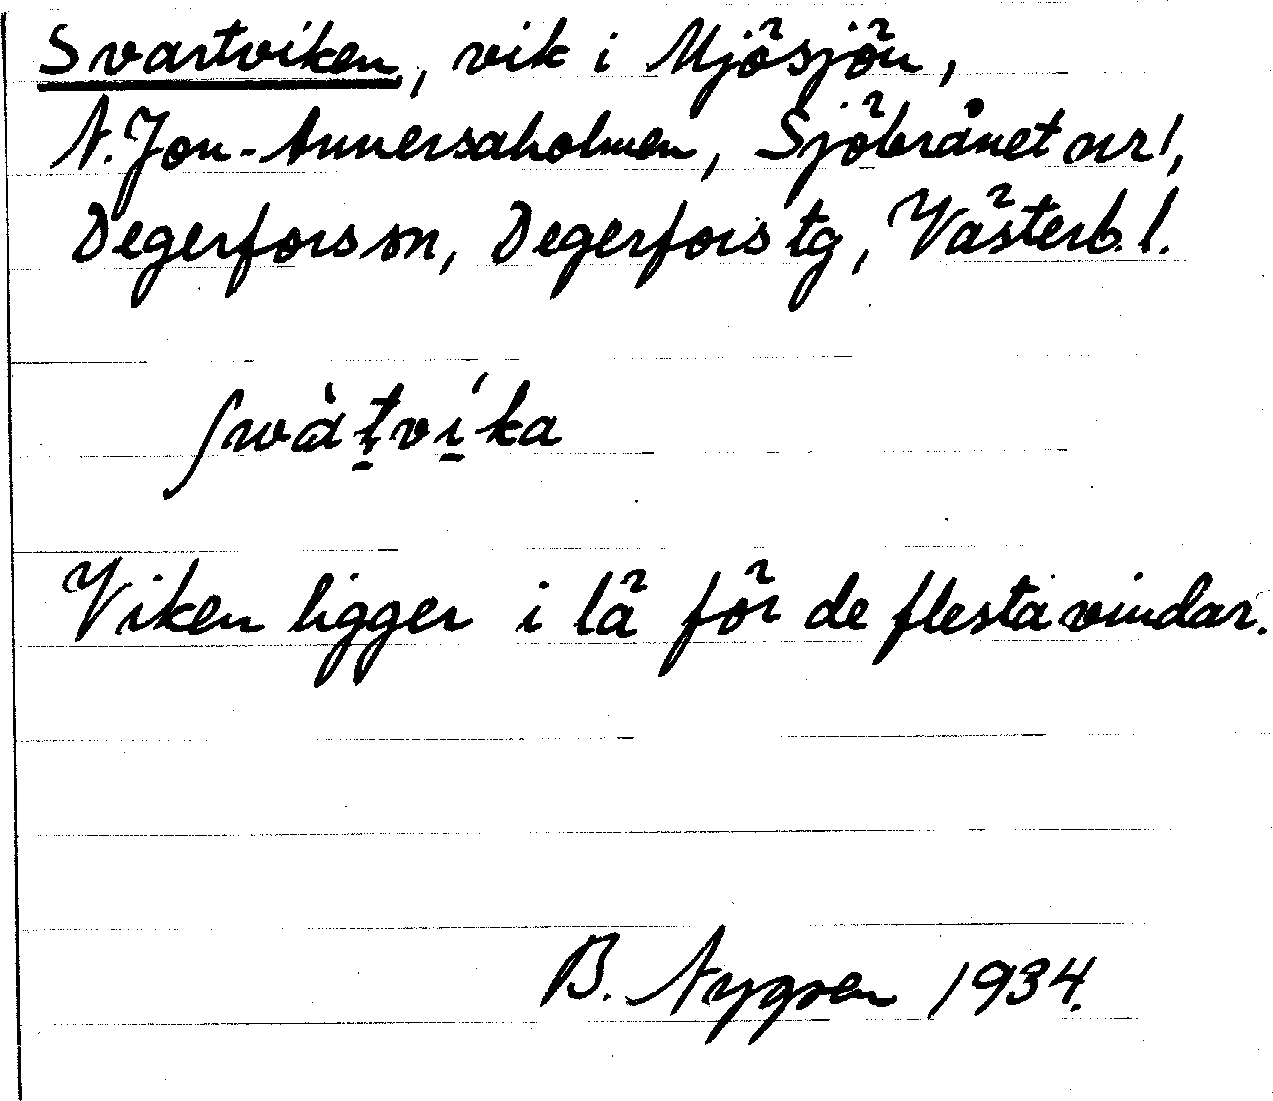 Svartviken, vik i Mjösjön,
N. Jon-Annersaholmen, Sjöbrånet nr 1,
Degerfors sn, Degerfors tg, Västerb. l.
ʃwàt̠ví̠ka
Viken ligger i lä för de flesta vindar.
B. Nygren 1934.